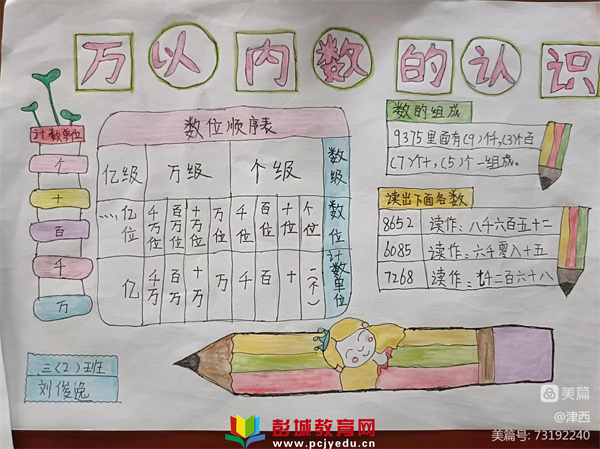 万以内数的认识
计数单位
个
十
百
千
万
数位顺序表
亿级 万级 个级 数级
……亿位 千万位 百万位 十万位 万位 千位 百位 十位 个位 数位
亿 千万 百万 十万 万 千 百 十 一(个) 计数单位
数的组成
9375里面有(9)个千,(3)个百
(7)个十,(5)个一组成。
读出下面各数
8652 读作:八千六百五十二
6085 读作:六千零八十五
7268 读作:七千二百六十八
三(2)班
刘俊逸
彭城教育网
www.pcjyedu.cn
美篇
@津西
美篇号: 73192240